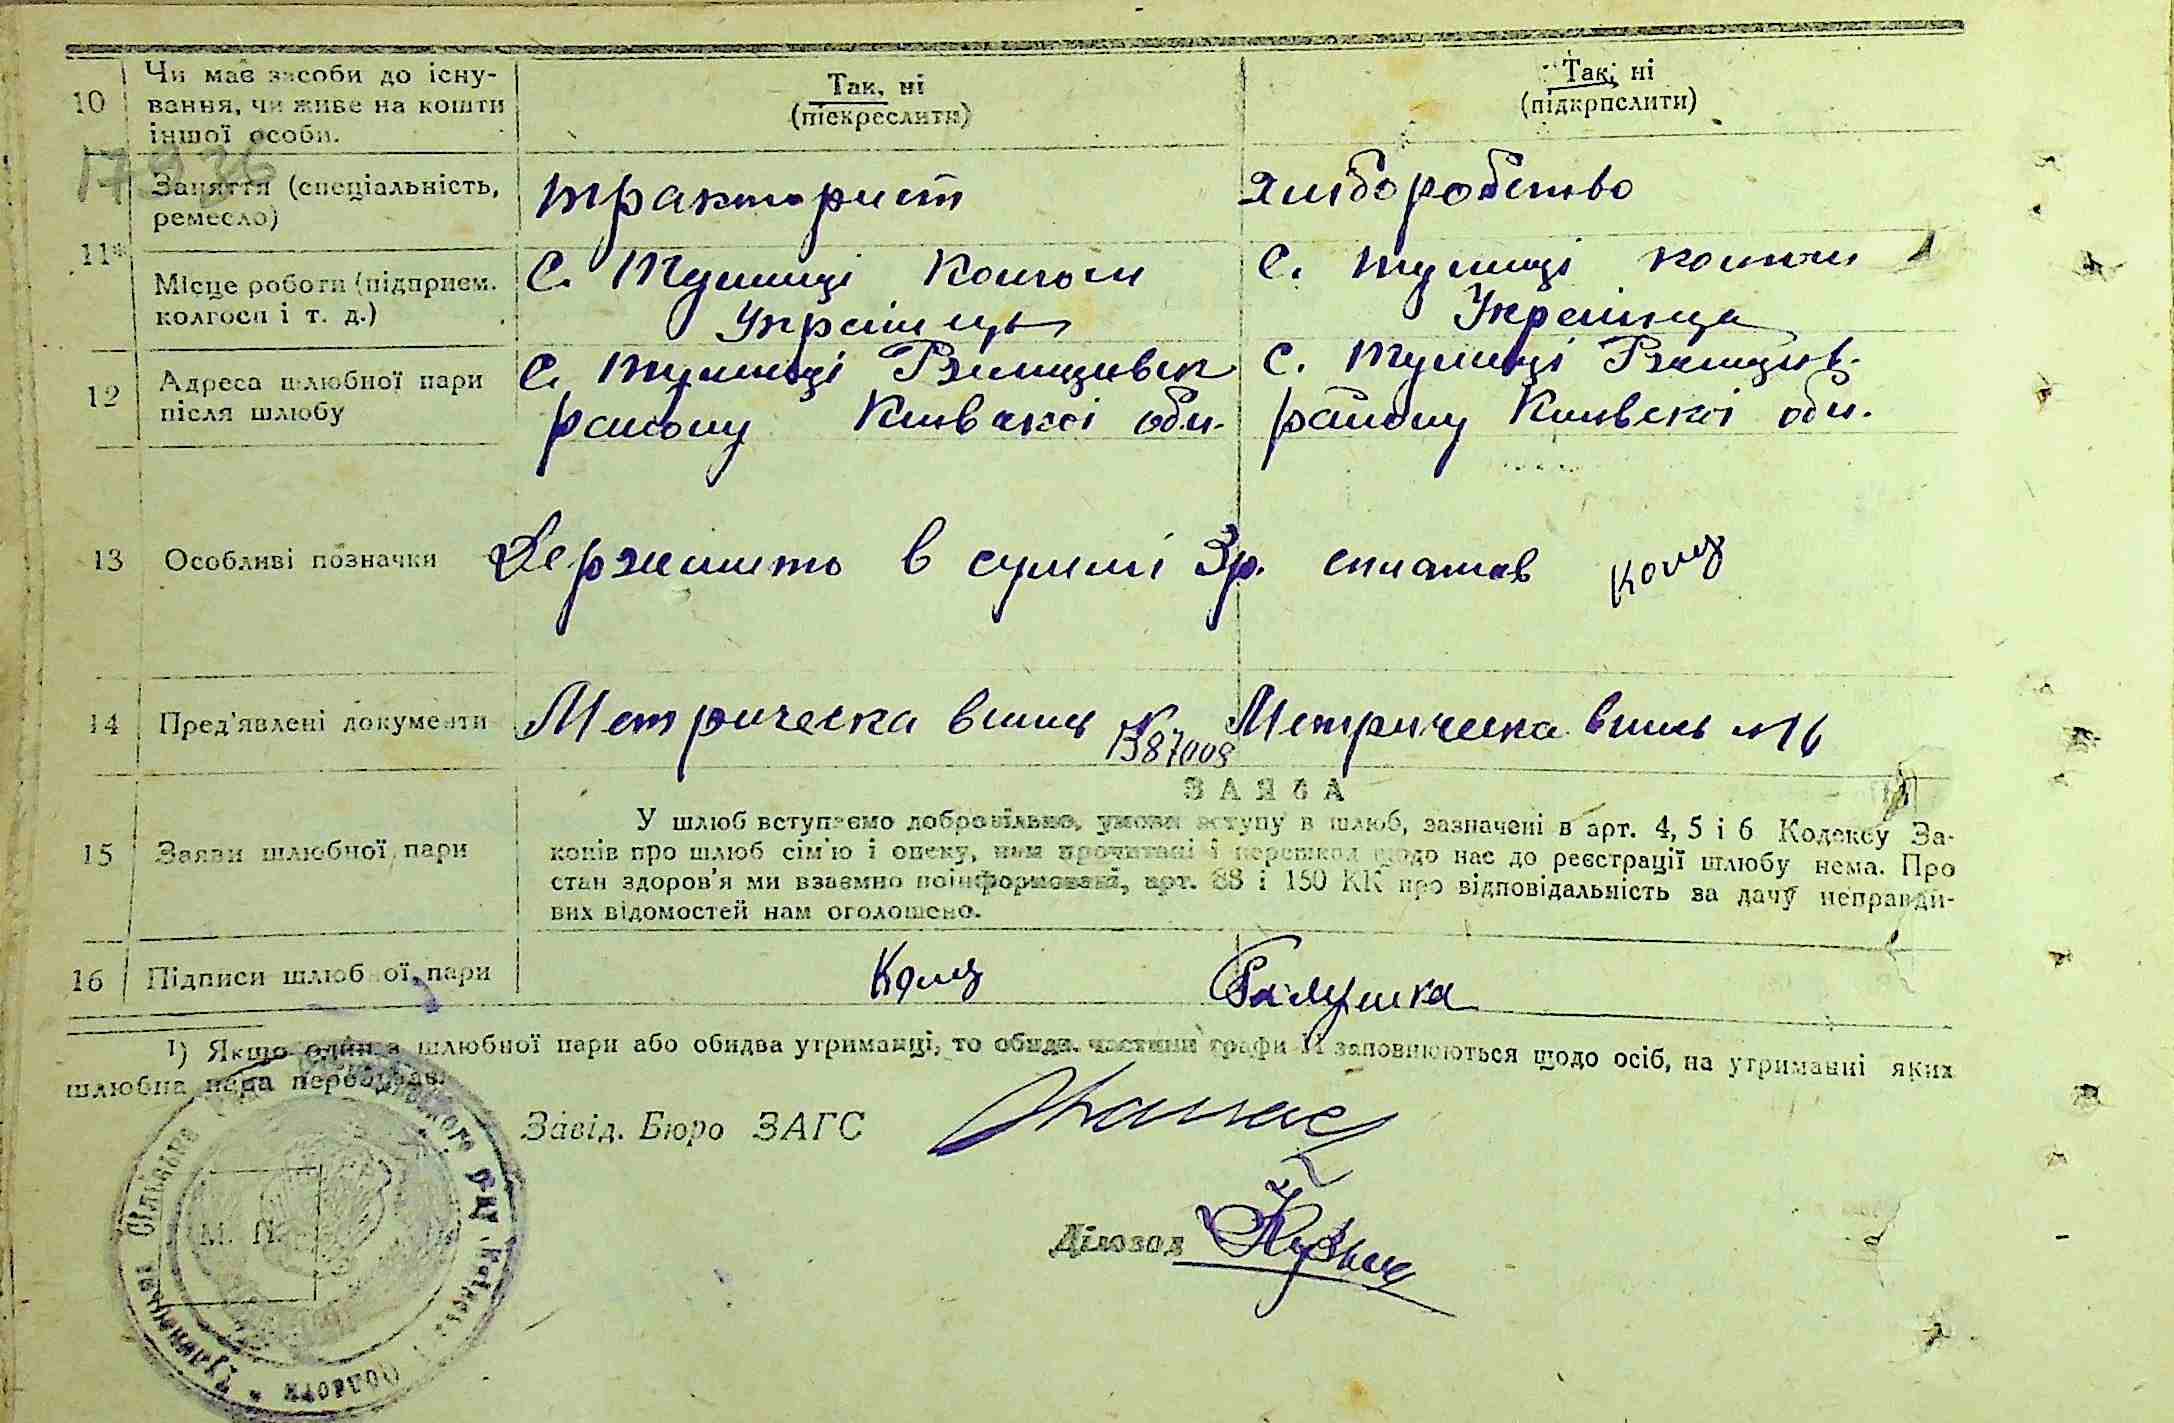 10 Чи має засоби до існу-
вання, чи живе на кошти
іншої особи.
Так, ні
(підкреслити)
Так, ні
(підкрпслити)
Заняття (спеціальність,
ремесло)
тракторист
хліборобство
11*
Місце роботи (підприєм.
колгосп і т. д.)
с. Тулинці
Українець
с. Тулинці
Українця
12 Адреса шлюбної пари
після шлюбу
с. Тулинці Ржищівськ
району Київської обл.
с. Тулинці Ржищів.
району Київської обл.
13 Особливі позначки
Держмито в суммі 3р. сплатив
14 Пред'явлені документи
Метрическа випись №
Метрическа випись №16
ЗАЯВА
15 Заяви шлюбної пари
У шлюб вступаємо добровільно, умови вступу в шлюб, зазначені в арт. 4, 5 і 6 Кодексу За-
конів про шлюб сім'ю і опеку, нам прочитані і перешкод щодо нас до реєстрації шлюбу нема. Про
стан здоров'я ми взаємно поінформовані, арт. 88 і 150 КК про відповідальність за дачу неправди-
вих відомостей нам оголошено.
16 Підписи шлюбної пари
1) Якщо один з шлюбної пари або обидва утриманці, то обидв. частини графи 11 заповнюються щодо осіб, на утриманні яких
шлюбна пара перебуває.
Завід. Бюро ЗАГС
Діловод
М. П.